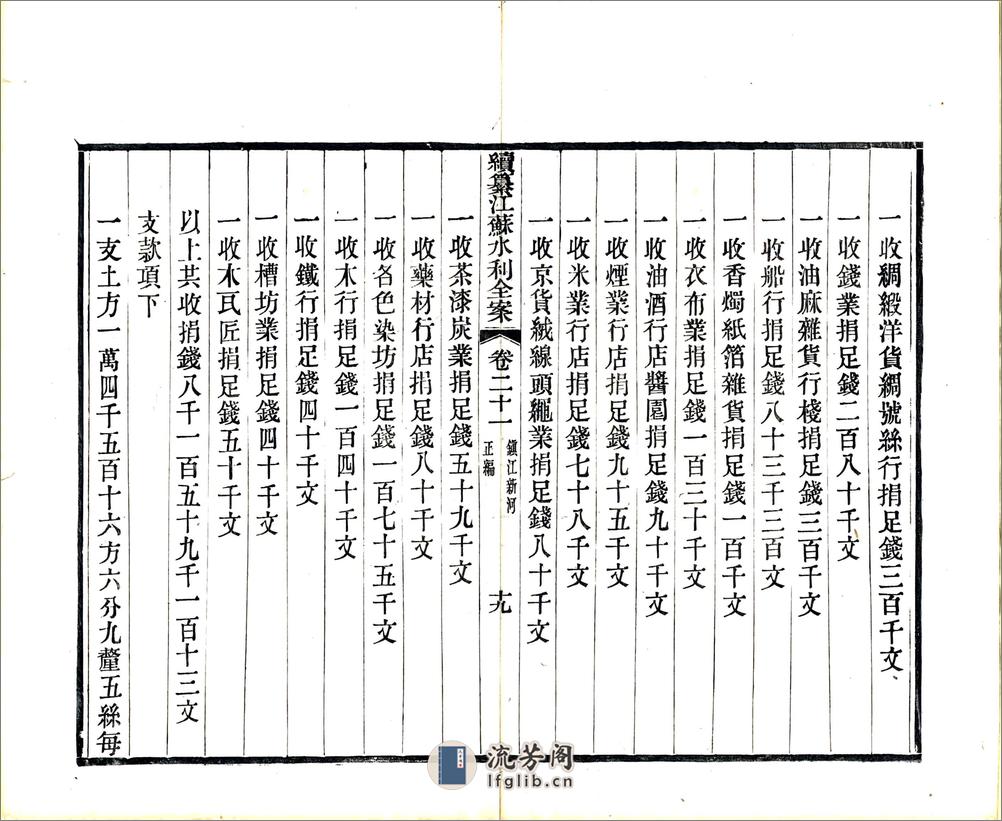 一收綢緞洋貨綢號絲行捐足錢三百千文
一收錢業捐足錢二百八十千文
一收油麻雜貨行棧捐足錢三百千文
一收船行捐足錢八十三千三百文
一收香燭紙箔雜貨捐足錢一百千文
一收衣布業捐足錢一百三十千文
一收油酒行店醬園捐足錢九十千文
一收煙業行店捐足錢九十五千文
一收米業行店捐足錢七十八千文
一收京貨絨線頭繩業捐足錢八十千文
續纂江蘇水利全案 卷二十一 鎮江新河 正編 十九
一收茶漆炭業捐足錢五十九千文
一收藥材行店捐足錢八十千文
一收各色染坊捐足錢一百七十五千文
一收木行捐足錢一百四十千文
一收鐵行捐足錢四十千文
一收槽坊業捐足錢四十千文
一收木瓦匠捐足錢五十千文
以上共收捐錢八千一百五十九千一百十三文
支款項下
一支土方一萬四千五百十六方六分九釐五絲每
流芳阁
lfglib.cn